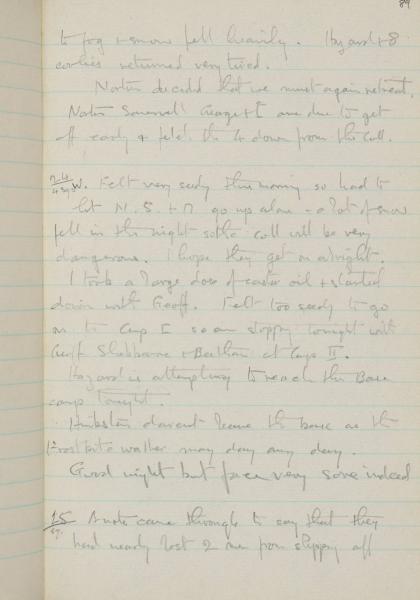 89
to fog & snow fell heavily. Hazard & 8
coolies returned very tired.
Norton decided that we must again retreat.
Norton Somervell George & I are due to get
off early & fetch the 4 down from the Coll.
24 W. Felt very seedy this morning so had to
let N. S. & M go up alone - a lot of snow
fell in the night so the coll will be very
dangerous. I hope they get on alright.
I took a large dose of castor oil & started
down with Geoff. Felt too seedy to go
on to Camp I so am stopping tonight with
Geoff Shebbeare & Beetham at Camp II.
Hazard is attempting to reach the Base
camp tonight.
Hinkston daren't leave the base as the
frostbite walker may day any day.
Good night but face very sore indeed
25 A note came through to say that they
had nearly lost 2 men from slipping off